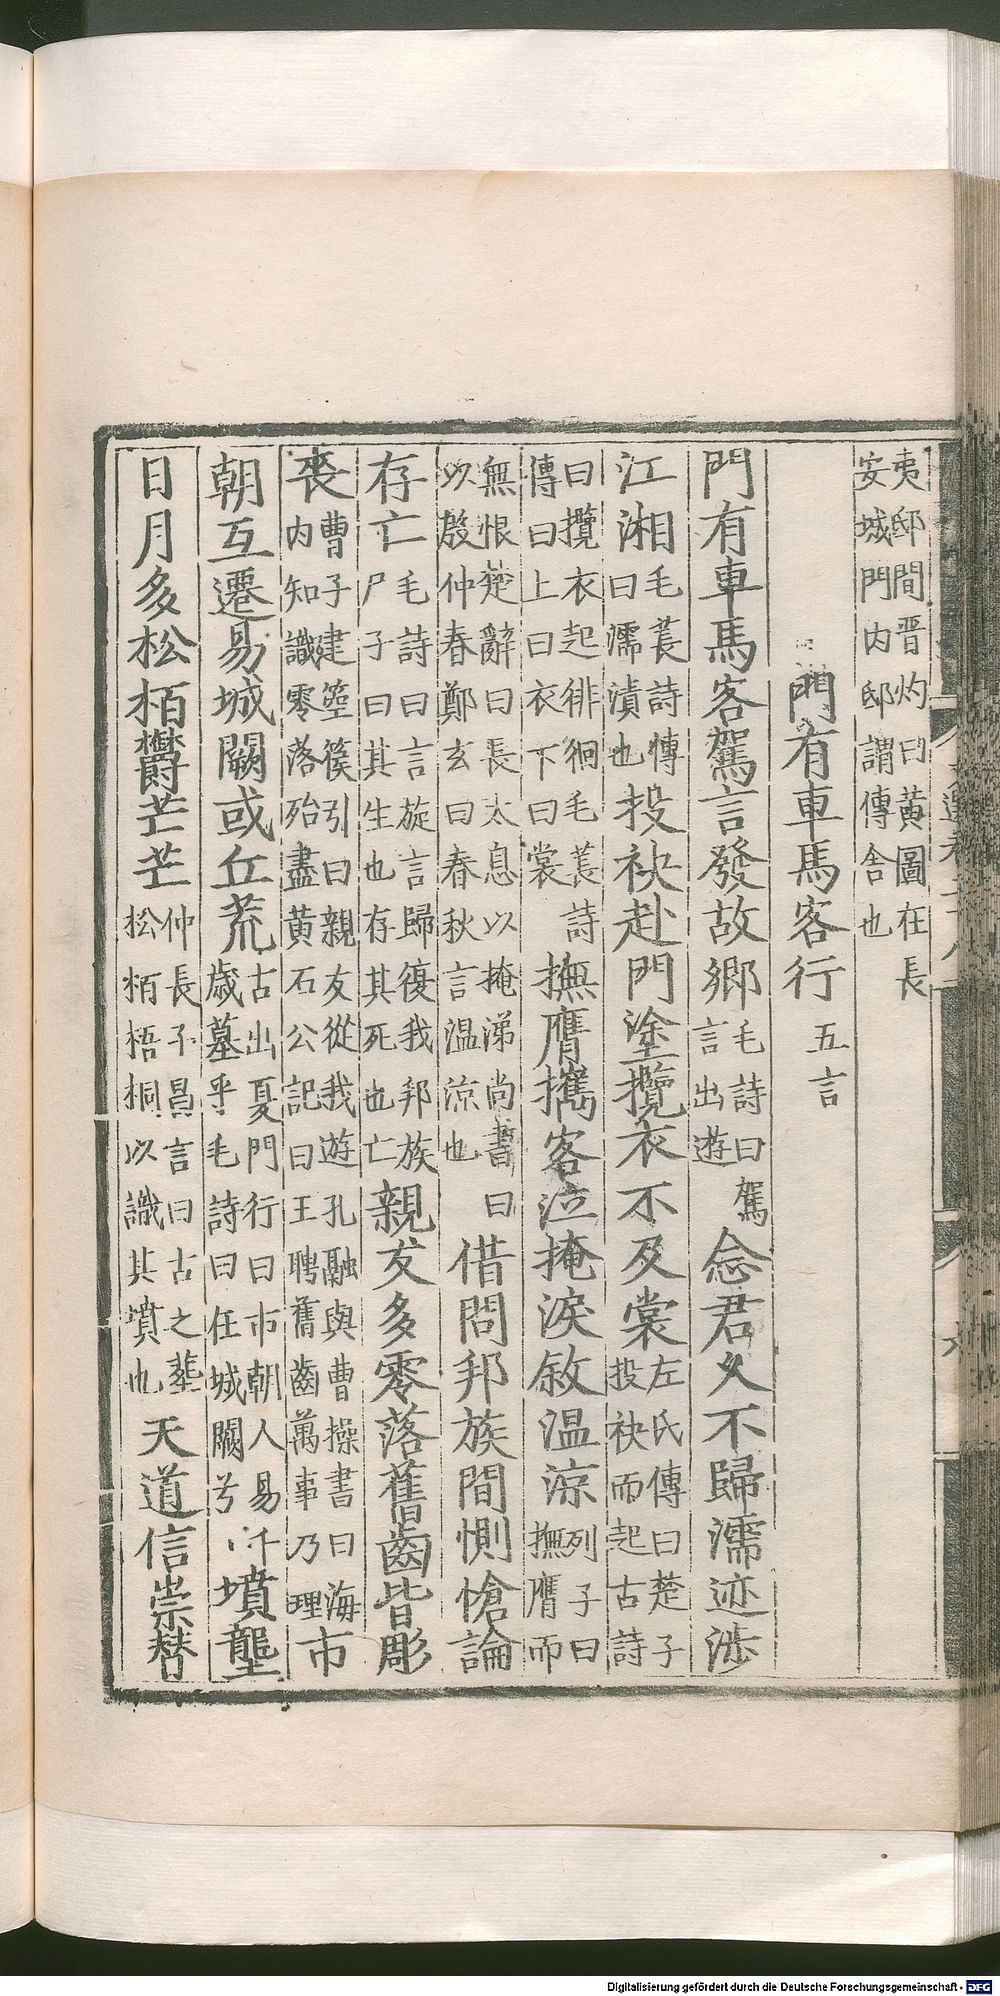 夷邸間晉灼曰黃圖在長
安城門內邸謂傳舍也
門有車馬客行五言
門有車馬客駕言發故鄉毛詩曰駕言出遊念君久不歸濡迹涉
江湘毛萇詩傳曰濡漬也投袂赴門塗攬衣不及裳左氏傳曰楚子投袂而起古詩
曰攬衣起徘徊毛萇詩傳曰上曰衣下曰裳撫膺攜客泣掩淚敘溫涼列子曰撫膺而
無恨楚辭曰長太息以掩涕尚書曰以殷仲春鄭玄曰春秋言溫涼也借問邦族間惻愴論
存亡毛詩曰言旋言歸復我邦族尸子曰其生也存其死也亡親友多零落舊齒皆彫
喪曹子建箜篌引曰親友從我遊孔融與曹操書曰海內知識零落殆盡黃石公記曰王聘舊齒萬事乃理市
朝互遷易城闕或丘荒古出夏門行曰市朝人易千歲墓乎毛詩曰在城闕兮墳壟
日月多松栢鬱芒芒仲長子昌言曰古之塟松栢梧桐以識其墳也天道信崇替
六
Digitalisierung gefördert durch die Deutsche Forschungsgemeinschaft - DFG